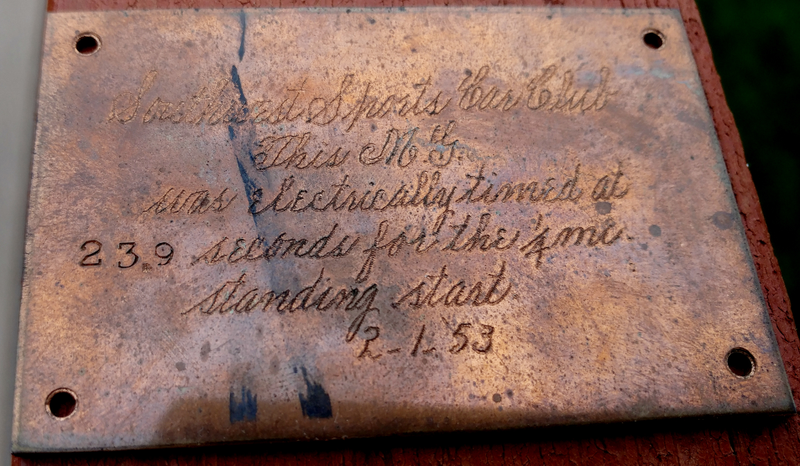 Southwest Sports Car Club
This M.G.
was electrically timed at
23.9 seconds for the ¼ mi.
standing start
2-1-53